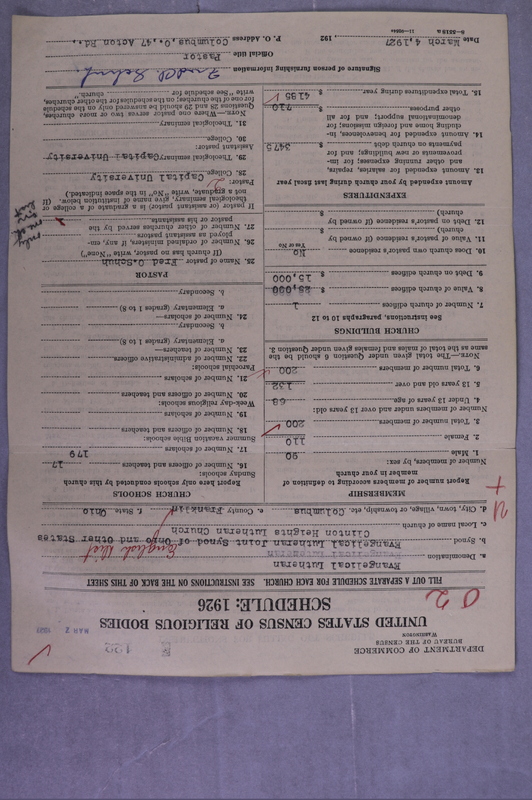 DEPARTMENT OF COMMERCE
BUREAU OF THE CENSUS
WASHINGTON
E
122
MAR 7 1927
UNITED STATES CENSUS OF RELIGIOUS BODIES
SCHEDULE: 1926
02
FILL OUT A SEPARATE SCHEDULE FOR EACH CHURCH. SEE INSTRUCTIONS ON THE BACK OF THIS SHEET
a. Denomination Evangelical Lutheran
b. Synod Evangelical Lutheran Joint Synod of Ohio and Other States
English Dist
c. Local name of church Clinton Heights Lutheran Church
d. City, town, village, or township, etc. Columbus e. County Franklin f. State Ohio
MEMBERSHIP
Report number of members according to definition of
member in your church
Number of members, by sex:
1. Male 90
2. Female 110
3. Total number of members 200
Number of members under and over 13 years old:
4. Under 13 years of age 68
5. 13 years old and over 132
6. Total number of members 200
NOTE.—The total given under Question 6 should be the
same as the total of males and females given under Question 3.
CHURCH BUILDINGS
See instructions, paragraphs 10 to 12
7. Number of church edifices 1
8. Value of church edifices $
9. Debt on church edifices $ 15,000
10. Does church own pastor's residence No
Yes or No
11. Value of pastor's residence (if owned by
church) $
12. Debt on pastor's residence (if owned by
church) $
EXPENDITURES
Amount expended by your church during last fiscal year
13. Amount expended for salaries, repairs,
and other running expenses; for im-
provements or new building; and for
payments on church debt $ 3475
14. Amount expended for benevolences, in-
cluding home and foreign missions; for
denominational support; and for all
other purposes $ 710
15. Total expenditures during year $ 4185
CHURCH SCHOOLS
Report here only schools conducted by this church
Sunday schools:
16. Number of officers and teachers 17
17. Number of scholars 179
Summer vacation Bible schools:
18. Number of officers and teachers
19. Number of scholars
Week-day religious schools:
20. Number of officers and teachers
21. Number of scholars
Parochial schools:
22. Number of administrative officers
23. Number of teachers—
a. Elementary (grades 1 to 8)
b. Secondary
24. Number of scholars—
a. Elementary (grades 1 to 8)
b. Secondary
PASTOR
25. Name of pastor Fred O. Schuh
(If church has no pastor, write "None")
26. Number of ordained ministers, if any, em-
ployed as assistant pastors
27. Number of other churches served by the
pastor or his assistants
If pastor (or assistant pastor) is a graduate of a college or
theological seminary, give name of institution below. (If
not a graduate, write "No" in the space indicated.)
Pastor:
28. College Capital University
29. Theological seminary Capital University
Assistant pastor:
30. College
31. Theological seminary
NOTE.—Where one pastor serves two or more churches,
Questions 28 and 29 should be answered only on the schedule
for one of the churches; on the schedules for the other churches,
write "See schedule for church."
Signature of person furnishing information
Official title Pastor
Date March 4, 1927, 192 P. O. Address Columbus, O., 47 Acton Rd.